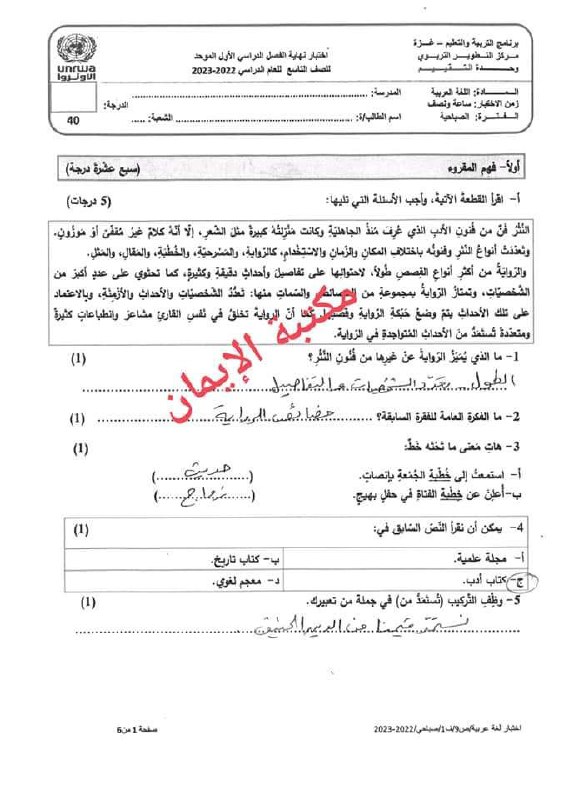 برنامج التربية والتعليم – غزة
مركز التطوير التربوي
وحدة التقييم
اختبار نهاية الفصل الدراسي الأول الموحد
للصف التاسع للعام الدراسي 2022-2023
unrwa
الأونروا
المادة: اللغة العربية
المدرسة:
الدرجة:
زمن الاختبار: ساعة ونصف
الفترة: الصباحية
اسم الطالب/ة:
الشعبة:
40
أولاً- فهم المقروء (سبع عشرة درجة)
أ- اقرأ القطعة الآتية، وأجب الأسئلة التي تليها: (5 درجات)
النَّثرُ فنٌّ من فنونِ الأدبِ الذي عُرفَ مُنذُ الجاهليّةِ وكانت مَنزِلتُه كبيرةً مثلَ الشعرِ، إلّا أنّه كلامٌ غير مُقفّىً أوْ موزونٍ.
وتعدّدتْ أنواعُ النثرِ وفنونُه باختلافِ المكانِ والزَّمانِ والاستِخدامِ، كالرّوايةِ، والمَسرحيّةِ، والخُطبَةِ، والمَقالِ، والمَثلِ.
والروايةُ من أكثرِ أنواعِ القِصصِ طُولاً؛ لاحتوائِها على تفاصيلَ وأحداثٍ دقيقةٍ وكثيرةٍ، كما تحتوي على عددٍ أكبرَ من
الشخصيّاتِ، وتمتازُ الرّوايةُ بمجموعةٍ من الخصائصِ والسّماتِ منها: تعدُّدُ الشّخصيّاتِ والأحداثِ والأزمنةِ، وبالاعتمادِ
على تلك الأحداثِ يتمّ وضعُ حَبكةِ الرّوايةِ وقصّتِها، كما أنّ الروايةَ تخلقُ في نَفسِ القارئِ مشاعرَ وانطباعاتٍ كثيرةً
ومتعدّدةً تُستمدُّ منَ الأحداثِ المُتواجدةِ في الروايةِ.
مكتبة الإيمان
1- ما الذي يُمَيّزُ الرّوايةَ عنْ غَيرِها من فُنُونِ النَّثْرِ؟ (1)
الطول تعدد الشخصيات و التفاصيل
2- ما الفكرة العامة للفقرة السابقة؟ خصائص الرواية (1)
3- هاتِ مَعنى ما تَحْتَه خَطٌّ: (1)
أ- استمعتُ إلى خُطبةِ الجُمُعةِ بإنصاتٍ. (حديث)
ب- أُعلنَ عن خِطبةِ الفتاةِ في حفلٍ بهيجٍ. ()
4- يمكن أن نقرأ النّصَّ السّابق في: (1)
أ- مجلة علمية.
ب- كتاب تاريخ.
ج- كتاب أدب.
د- معجم لغوي.
5- وظّفِ التّركيب (تُستمَدُّ من) في جملة من تعبيرك. (1)
نستمد قيمنا من الدين الحنيف
اختبار لغة عربية/ص9/ف1/صباحي/2022-2023
صفحة 1 من 6